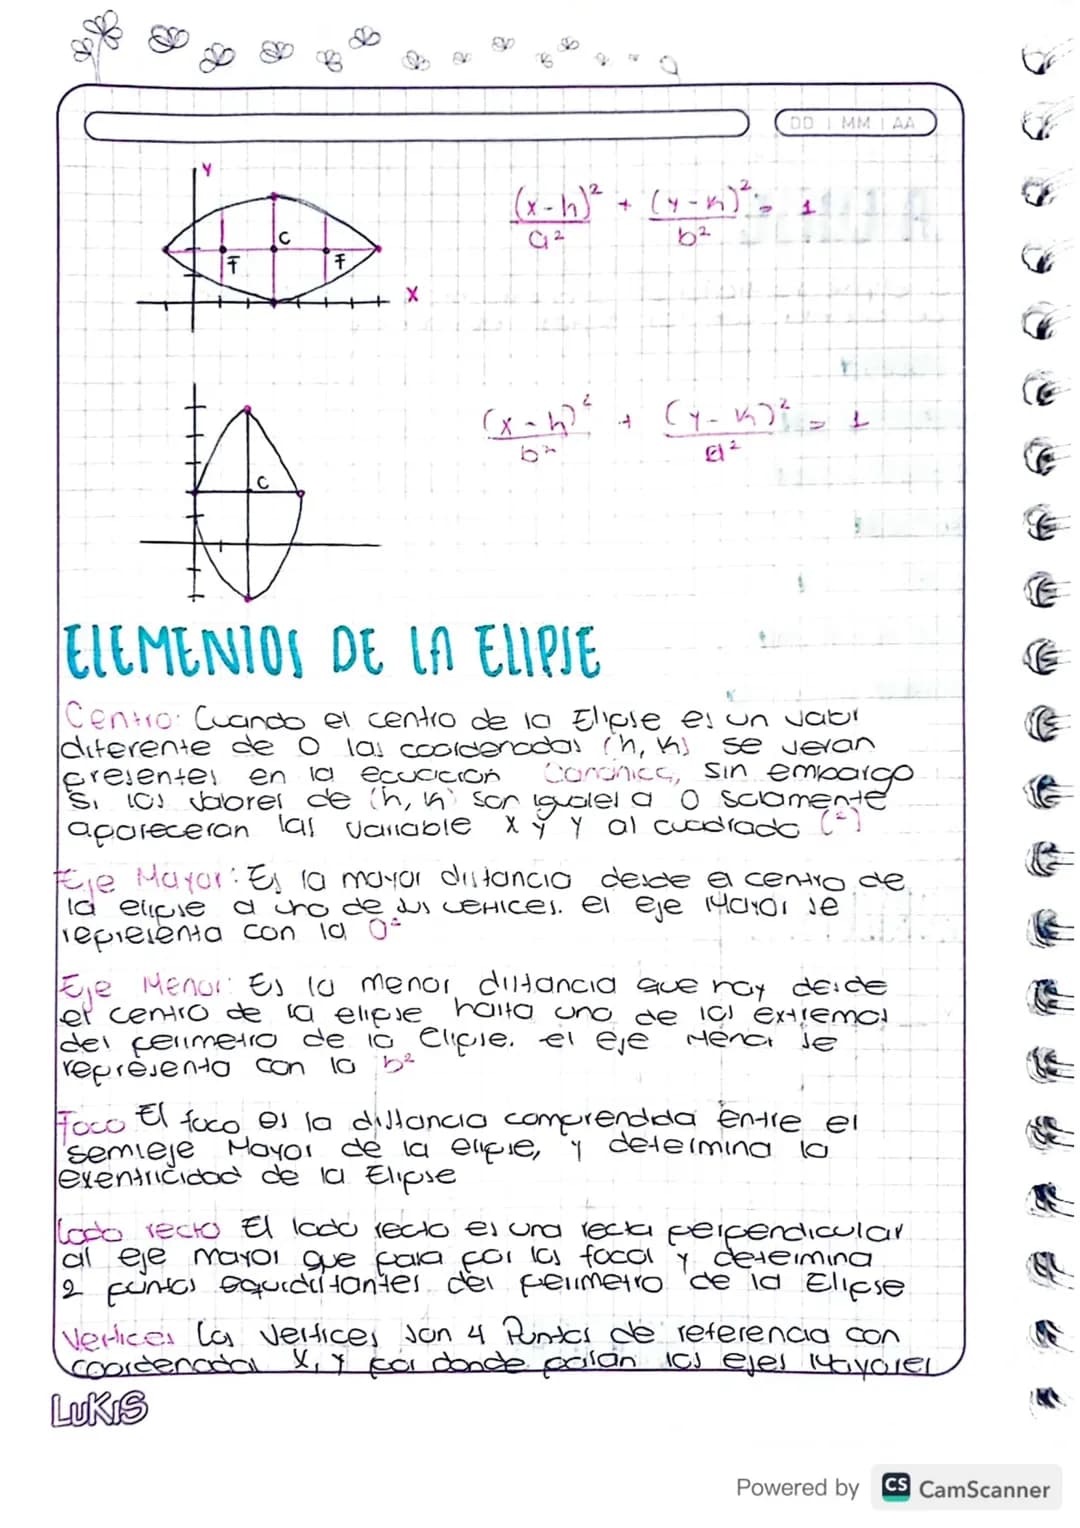 DD | MM | AA
Y
C
F
F
X
(x-h)² + (y-k)² = 1
a² b²
C
(x-h)² + (y-k)² = 1
b² a²
ELEMENTOS DE LA ELIPSE
Centro: Cuando el centro de la Elipse es un valor
diferente de 0 las coordenadas (h, k) se veran
presentes en la ecuación Canónica, sin embargo
si los valores de (h, k) son iguales a 0 solamente
apareceran las variable x y y al cuadrado (²)
Eje Mayor: Es la mayor distancia desde el centro de
la elipse a uno de sus vertices. el eje Mayor se
representa con la a²
Eje Menor: Es la menor distancia que hay desde
el centro de la elipse hasta uno de los extremos
del perimetro de la Elipse. el eje Menor se
representa con la b²
Foco El foco es la distancia comprendida entre el
semieje Mayor de la elipse, y determina la
exentricidad de la Elipse
Lado recto El lado recto es una recta perpendicular
al eje mayor que pasa por los focos y determina
2 puntos equidistantes del perimetro de la Elipse
Vertices Los vertices son 4 Puntos de referencia con
coordenadas x, y por donde pasan los ejes Mayores
LUKIS
Powered by CS CamScanner